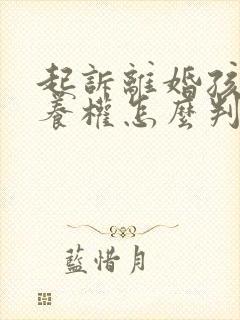 起訴離婚孩
養權怎麼判
藍惜月